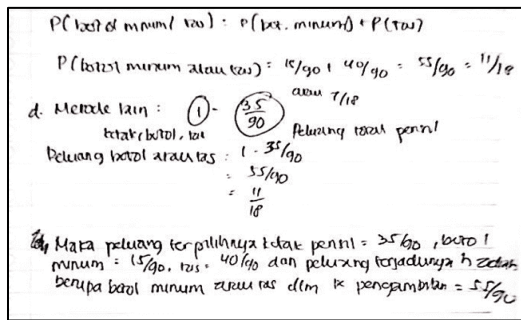 P(botol minum / tas) = P(bot. minum) + P(tas)
P(botol minum atau tas) = 15/90 + 40/90 = 55/90 = 11/18
d. Metode lain : 1 - 35/90 atau 7/18
kotak, botol, tas Peluang total pensil
Peluang botol atau tas : 1 - 35/90
= 55/90
= 11/18
Maka peluang terpilihnya kotak pensil = 35/90, botol
minum = 15/90, tas = 40/90 dan peluang terjadinya hadiah
berupa botol minum atau tas dlm 1x pengambilan = 55/90